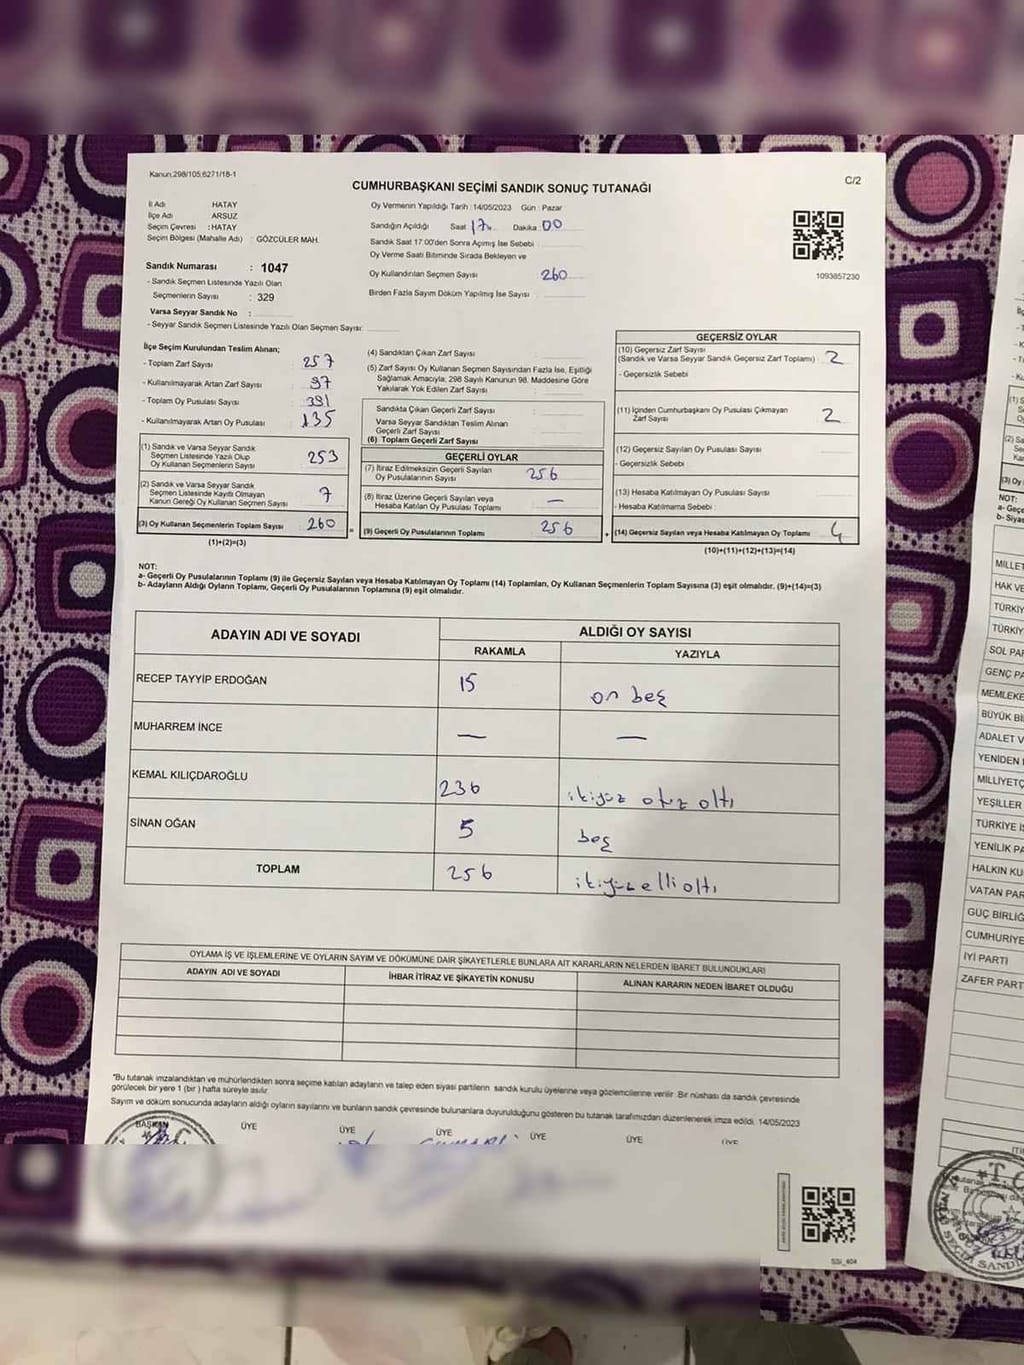 Kanun:298/105;6271/18-1
C/2
CUMHURBAŞKANI SEÇİMİ SANDIK SONUÇ TUTANAĞI
İl Adı HATAY
İlçe Adı ARSUZ
Seçim Çevresi : HATAY
Seçim Bölgesi (Mahalle Adı) : GÖZCÜLER MAH.
Sandık Numarası : 1047
- Sandık Seçmen Listesinde Yazılı Olan
Seçmenlerin Sayısı : 329
Varsa Seyyar Sandık No :
- Seyyar Sandık Seçmen Listesinde Yazılı Olan Seçmen Sayısı:
Oy Vermenin Yapıldığı Tarih : 14/05/2023 Gün : Pazar
Sandığın Açıldığı Saat 17 Dakika 00
Sandık Saat 17.00'den Sonra Açımış İse Sebebi :
Oy Verme Saati Bitiminde Sırada Bekleyen ve
Oy Kullandırılan Seçmen Sayısı 260
Birden Fazla Sayım Döküm Yapılmış İse Sayısı :
1093857230
İlçe Seçim Kurulundan Teslim Alınan;
- Toplam Zarf Sayısı : 257
- Kullanılmayarak Artan Zarf Sayısı : 97
- Toplam Oy Pusulası Sayısı : 391
- Kullanılmayarak Artan Oy Pusulası : 135
(1) Sandık ve Varsa Seyyar Sandık
Seçmen Listesinde Yazılı Olup
Oy Kullanan Seçmenlerin Sayısı 253
(2) Sandık ve Varsa Seyyar Sandık
Seçmen Listesinde Kayıtlı Olmayan
Kanun Gereği Oy Kullanan Seçmen Sayısı 7
(3) Oy Kullanan Seçmenlerin Toplam Sayısı 260
(1)+(2)=(3)
(4) Sandıktan Çıkan Zarf Sayısı
(5) Zarf Sayısı Oy Kullanan Seçmen Sayısından Fazla İse, Eşitliği
Sağlamak Amacıyla; 298 Sayılı Kanunun 98. Maddesine Göre
Yakılarak Yok Edilen Zarf Sayısı
Sandıkta Çıkan Geçerli Zarf Sayısı
Varsa Seyyar Sandıktan Teslim Alınan
Geçerli Zarf Sayısı
(6) Toplam Geçerli Zarf Sayısı
GEÇERLİ OYLAR
(7) İtiraz Edilmeksizin Geçerli Sayılan
Oy Pusulalarının Sayısı 256
(8) İtiraz Üzerine Geçerli Sayılan veya
Hesaba Katılan Oy Pusulası Toplamı —
= (9) Geçerli Oy Pusulalarının Toplamı 256
GEÇERSİZ OYLAR
(10) Geçersiz Zarf Sayısı
(Sandık ve Varsa Seyyar Sandık Geçersiz Zarf Toplamı) 2
- Geçersizlik Sebebi
(11) İçinden Cumhurbaşkanı Oy Pusulası Çıkmayan
Zarf Sayısı 2
(12) Geçersiz Sayılan Oy Pusulası Sayısı
- Geçersizlik Sebebi
(13) Hesaba Katılmayan Oy Pusulası Sayısı
- Hesaba Katılmama Sebebi :
+ (14) Geçersiz Sayılan veya Hesaba Katılmayan Oy Toplamı 4
(10)+(11)+(12)+(13)=(14)
NOT:
a- Geçerli Oy Pusulalarının Toplamı (9) ile Geçersiz Sayılan veya Hesaba Katılmayan Oy Toplamı (14) Toplamları, Oy Kullanan Seçmenlerin Toplam Sayısına (3) eşit olmalıdır. (9)+(14)=(3)
b- Adayların Aldığı Oyların Toplamı, Geçerli Oy Pusulalarının Toplamına (9) eşit olmalıdır.
ADAYIN ADI VE SOYADI ALDIĞI OY SAYISI
RAKAMLA YAZIYLA
RECEP TAYYİP ERDOĞAN 15 on beş
MUHARREM İNCE — —
KEMAL KILIÇDAROĞLU 236 ikiyüz otuz altı
SİNAN OĞAN 5 beş
TOPLAM 256 ikiyüz elli altı
OYLAMA İŞ VE İŞLEMLERİNE VE OYLARIN SAYIM VE DÖKÜMÜNE DAİR ŞİKAYETLERLE BUNLARA AİT KARARLARIN NELERDEN İBARET BULUNDUKLARI
ADAYIN ADI VE SOYADI İHBAR İTİRAZ VE ŞİKAYETİN KONUSU ALINAN KARARIN NEDEN İBARET OLDUĞU
*Bu tutanak imzalandıktan ve mühürlendikten sonra seçime katılan adayların ve talep eden siyasi partilerin sandık kurulu üyelerine veya gözlemcilerine verilir. Bir nüshası da sandık çevresinde
görülecek bir yere 1 (bir) hafta süreyle asılır.
Sayım ve döküm sonucunda adayların aldığı oyların sayılarını ve bunların sandık çevresinde bulunanlara duyurulduğunu gösteren bu tutanak tarafımızdan düzenlenerek imza edildi. 14/05/2023
BAŞKAN ÜYE ÜYE ÜYE ÜYE ÜYE ÜYE
SSI_404
(3) Oy
NOT:
a- Geçe
b- Siyas
MİLLET
HAK VE
TÜRKİY
TÜRKİY
SOL PAR
GENÇ PA
MEMLEKE
BÜYÜK Bİ
ADALET V
YENİDEN
MİLLİYETÇ
YEŞİLLER
TÜRKİYE İŞ
YENİLİK PA
HALKIN KU
VATAN PAR
GÜÇ BİRLİĞ
CUMHURİYE
İYİ PARTİ
ZAFER PART